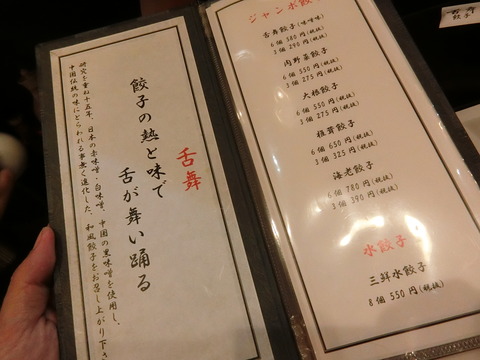 舌舞
餃子の熱と味で
舌が舞い踊る
研究を重ね十五年、日本の赤味噌、白味噌、中国の黒味噌を使用し、
中国伝統の味にとらわれる事無く進化した、和風餃子をお召し上がり下さ
ジャンボ餃子
舌舞餃子(味噌味)
6個 580円(税抜)
3個 290円(税抜)
肉野菜餃子
6個 550円(税抜)
3個 275円(税抜)
大根餃子
6個 550円(税抜)
3個 275円(税抜)
椎茸餃子
6個 650円(税抜)
3個 325円(税抜)
海老餃子
6個 780円(税抜)
3個 390円(税抜)
水餃子
三鮮水餃子
8個 550円(税抜)
餃子